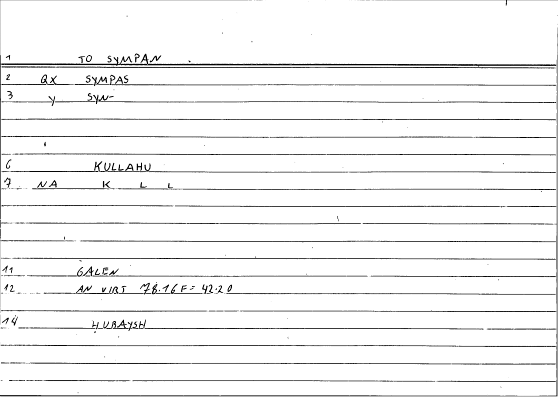 1 TO SYMPAN
2 QX SYMPAS
3 Y SYN-
6 KULLAHU
7 NA K L L
11 GALEN
12 AN VIRT 78.16 F = 42.20
14 ḤUBAYSH